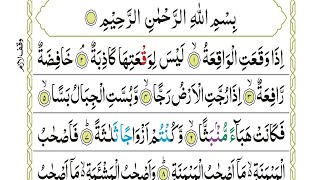 بِسْمِ اللهِ الرَّحْمٰنِ الرَّحِيْمِ
اِذَا وَقَعَتِ الْوَاقِعَةُ ۙ۱ لَيْسَ لِوَقْعَتِهَا كَاذِبَةٌ ۘ۲ خَافِضَةٌ
رَّافِعَةٌ ۙ۳ اِذَا رُجَّتِ الْاَرْضُ رَجًّا ۙ۴ وَّبُسَّتِ الْجِبَالُ بَسًّا ۙ۵
فَكَانَتْ هَبَآءً مُّنْۢبَثًّا ۙ۶ وَّكُنْتُمْ اَزْوَاجًا ثَلٰثَةً ؕ۷ فَاَصْحٰبُ
الْمَيْمَنَةِ ۙ۬ مَاۤ اَصْحٰبُ الْمَيْمَنَةِ ؕ۸ وَاَصْحٰبُ الْمَشْـَٔمَةِ ۙ۬ مَاۤ اَصْحٰبُ